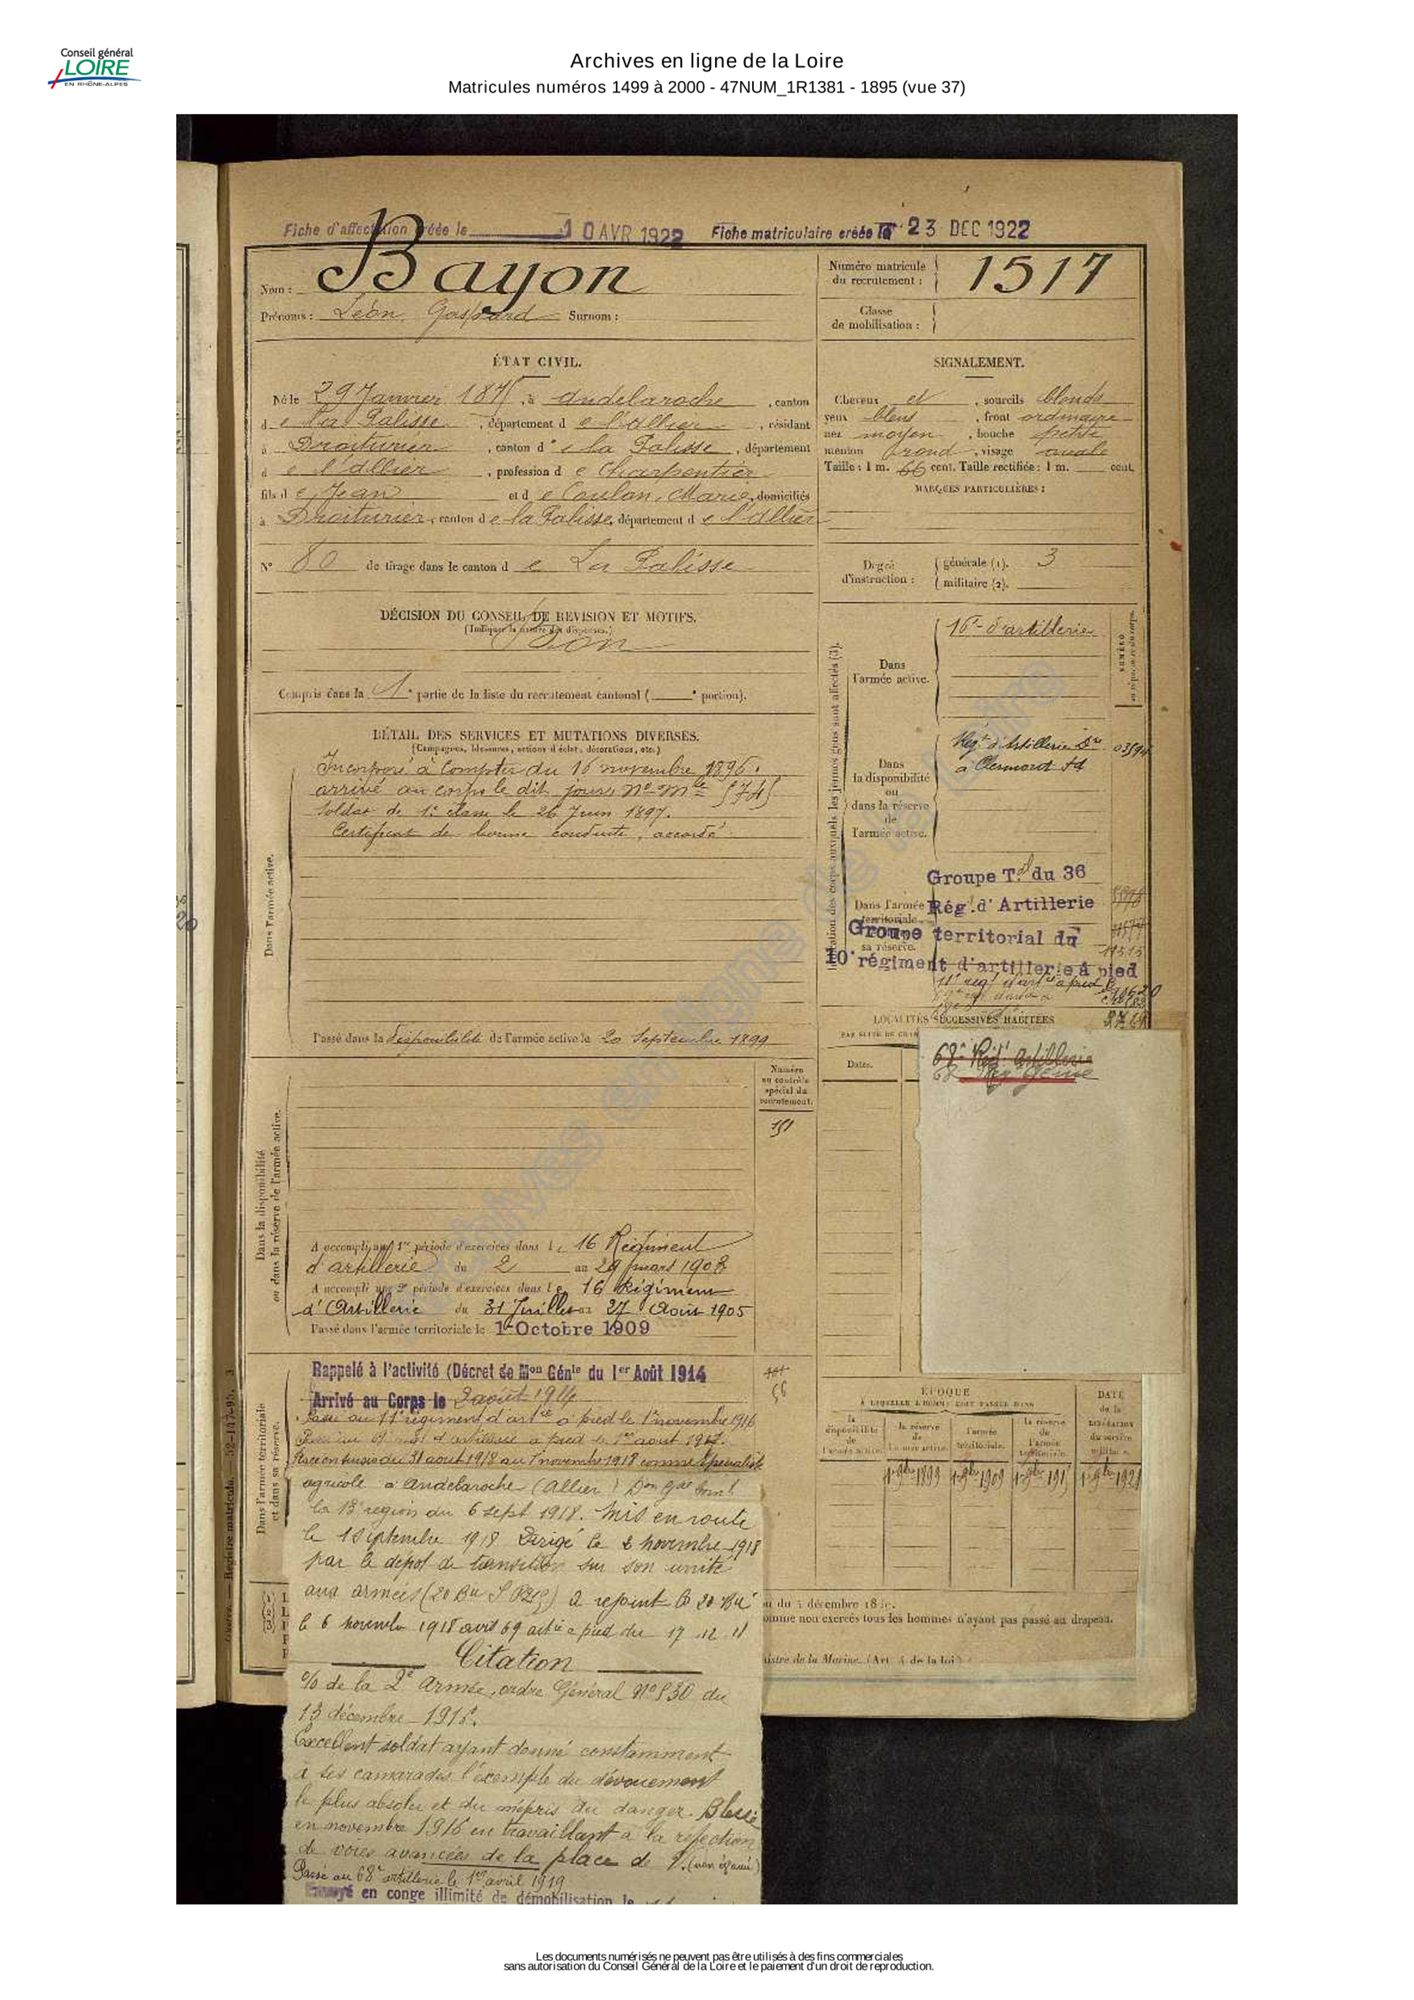 Conseil général
LOIRE
EN RHÔNE-ALPES
Archives en ligne de la Loire
Matricules numéros 1499 à 2000 - 47NUM_1R1381 - 1895 (vue 37)
Fiche d'affectation créée le 10 AVR 1922 Fiche matriculaire créée le 23 DEC 1922
Nom : Bayon
Prénoms : Léon Gaspard Surnom :
Numéro matricule du recrutement : 1517
Classe de mobilisation :
ÉTAT CIVIL.
Né le 29 Janvier 1875, à Andelaroche, canton
de La Palisse, département de l'Allier, résidant
à Droiturier, canton de la Palisse, département
de l'Allier, profession de Charpentier
fils de Jean et de Coulon, Marie, domiciliés
à Droiturier, canton de la Palisse, département de l'Allier
N° 80 de tirage dans le canton de La Palisse
SIGNALEMENT.
Cheveux et, sourcils blonds
yeux bleus, front ordinaire
nez moyen, bouche petite
menton rond, visage ovale
Taille : 1 m. 66 cent. Taille rectifiée : 1 m. cent.
MARQUES PARTICULIÈRES :
Degré d'instruction : générale (1). 3
militaire (2).
DÉCISION DU CONSEIL DE REVISION ET MOTIFS.
(Indiquer la nature des dispenses.)
Bon
Compris dans la 1e partie de la liste du recrutement cantonal ( e portion).
DÉTAIL DES SERVICES ET MUTATIONS DIVERSES.
(Campagnes, blessures, actions d'éclat, décorations, etc.)
Dans l'armée active.
Incorporé à compter du 16 novembre 1896.
arrivé au corps le dit jour, No Mle
Soldat de 1e classe le 26 Juin 1897.
Certificat de bonne conduite, accordé
Passé dans la disponibilité de l'armée active le 20 Septembre 1899
Indication des corps auxquels les jeunes gens sont affectés (3).
Dans l'armée active.
16e d'artillerie
Dans la disponibilité ou dans la réserve de l'armée active.
Regt d'Artillerie
à Clermont Fd
Dans l'armée territoriale
sa réserve.
Groupe T.al du 36
Rég. d'Artillerie
Groupe territorial du
10e régiment d'artillerie à pied
LOCALITÉS SUCCESSIVES HABITÉES
Dates.
68e Régt Artillerie
Numéro au contrôle spécial du recrutement.
151
Dans la disponibilité ou dans la réserve de l'armée active.
A accompli une 1re période d'exercices dans le 16 Régiment
d'artillerie du 2 au 29 mars 1902
A accompli une 2e période d'exercices dans le 16 Régiment
d'Artillerie du 31 Juillet au 27 Août 1905
Passé dans l'armée territoriale le 1er Octobre 1909
Dans l'armée territoriale et dans sa réserve.
Rappelé à l'activité (Décret de Mon Génle du 1er Août 1914
Arrivé au Corps le 3 août 1914
Passé au 11e régiment d'artie à pied le 1er novembre 1916
à pied le 1er août 1917.
du 31 août 1918 au 1 novembre 1918 comme spécialiste
agricole à Andelaroche (Allier)
la 13e région du 6 sept 1918. Mis en route
le 1 septembre 1918 Dirigé le 2 novembre 1918
par le dépôt de transition sur son unité
aux armées a rejoint
le 6 novembre 1918 à pied du 17 12 18
Citation
de la 2e Armée, ordre Général N° 830 du
13 décembre
Excellent soldat ayant donné constamment
à ses camarades l'exemple du dévouement
le plus absolu et du mépris du danger. Blessé
en novembre 1916 en travaillant à la réfection
de voies avancées de la place de V. (non évacué)
Passé au 68e artillerie le 1er avril 1919
Envoyé en congé illimité de démobilisation le
ÉPOQUE
À LAQUELLE L'HOMME DOIT PASSER DANS
la disponibilité de l'armée active.
la réserve de l'armée active.
l'armée territoriale.
la réserve de l'armée territoriale.
DATE de la LIBÉRATION du service militaire.
1er 9bre 1899
1er 9bre 1909
1er 9bre 1921
omme non exercés tous les hommes n'ayant pas passé au drapeau.
istre de la Marine. (Art. 4 de la loi)
Archives en ligne de la Loire
Les documents numérisés ne peuvent pas être utilisés à des fins commerciales
sans autorisation du Conseil Général de la Loire et le paiement d'un droit de reproduction.